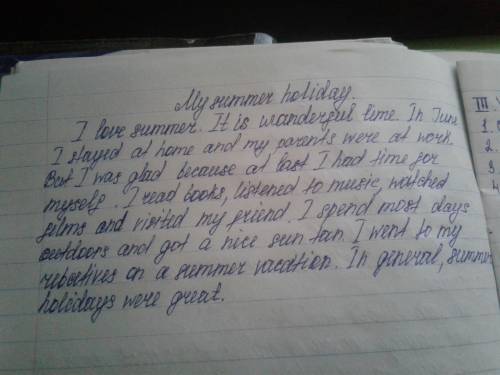 My summer holiday.
I love summer. It is wanderful time. In June
I stayed at home and my parents were at work.
But I was glad because at last I had time for
myself. I read books, listened to music, watched
films and visited my friend. I spend most days
outdoors and got a nice sun tan. I went to my
relatives on a summer vacation. In general, summer
holidays were great.
III
1.
2.
3.